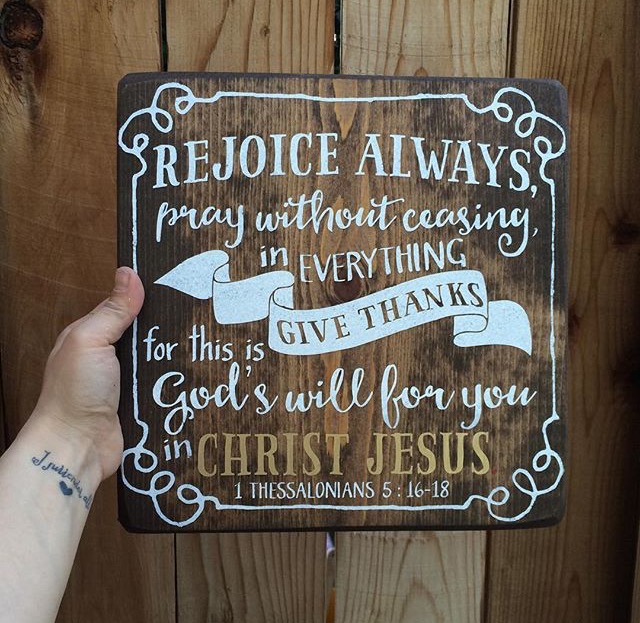 REJOICE ALWAYS,
pray without ceasing,
in EVERYTHING
GIVE THANKS
for this is
God's will for you
in CHRIST JESUS
1 THESSALONIANS 5:16-18